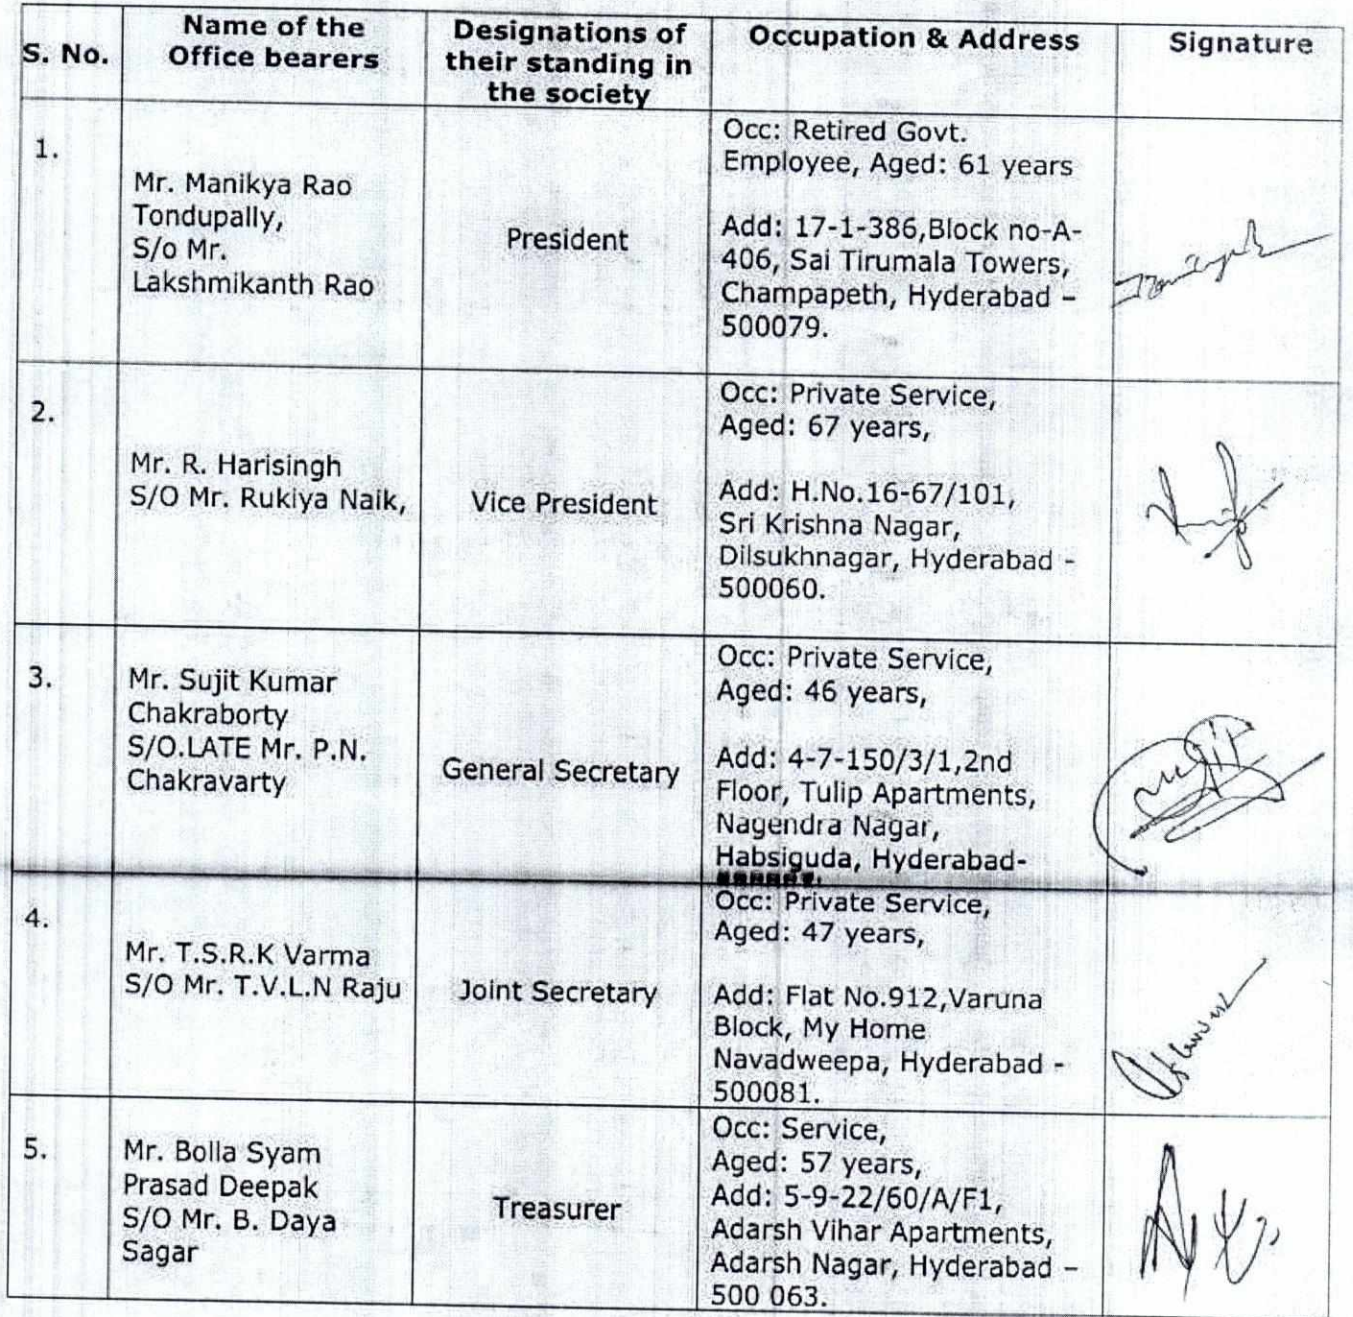 S. No.
Name of the
Office bearers
Designations of
their standing in
the society
Occupation & Address
Signature
1.
Mr. Manikya Rao
Tondupally,
S/o Mr.
Lakshmikanth Rao
President
Occ: Retired Govt.
Employee, Aged: 61 years
Add: 17-1-386,Block no-A-
406, Sai Tirumala Towers,
Champapeth, Hyderabad –
500079.
2.
Mr. R. Harisingh
S/O Mr. Rukiya Naik,
Vice President
Occ: Private Service,
Aged: 67 years,
Add: H.No.16-67/101,
Sri Krishna Nagar,
Dilsukhnagar, Hyderabad -
500060.
3.
Mr. Sujit Kumar
Chakraborty
S/O.LATE Mr. P.N.
Chakravarty
General Secretary
Occ: Private Service,
Aged: 46 years,
Add: 4-7-150/3/1,2nd
Floor, Tulip Apartments,
Nagendra Nagar,
Habsiguda, Hyderabad-
4.
Mr. T.S.R.K Varma
S/O Mr. T.V.L.N Raju
Joint Secretary
Occ: Private Service,
Aged: 47 years,
Add: Flat No.912,Varuna
Block, My Home
Navadweepa, Hyderabad -
500081.
5.
Mr. Bolla Syam
Prasad Deepak
S/O Mr. B. Daya
Sagar
Treasurer
Occ: Service,
Aged: 57 years,
Add: 5-9-22/60/A/F1,
Adarsh Vihar Apartments,
Adarsh Nagar, Hyderabad –
500 063.